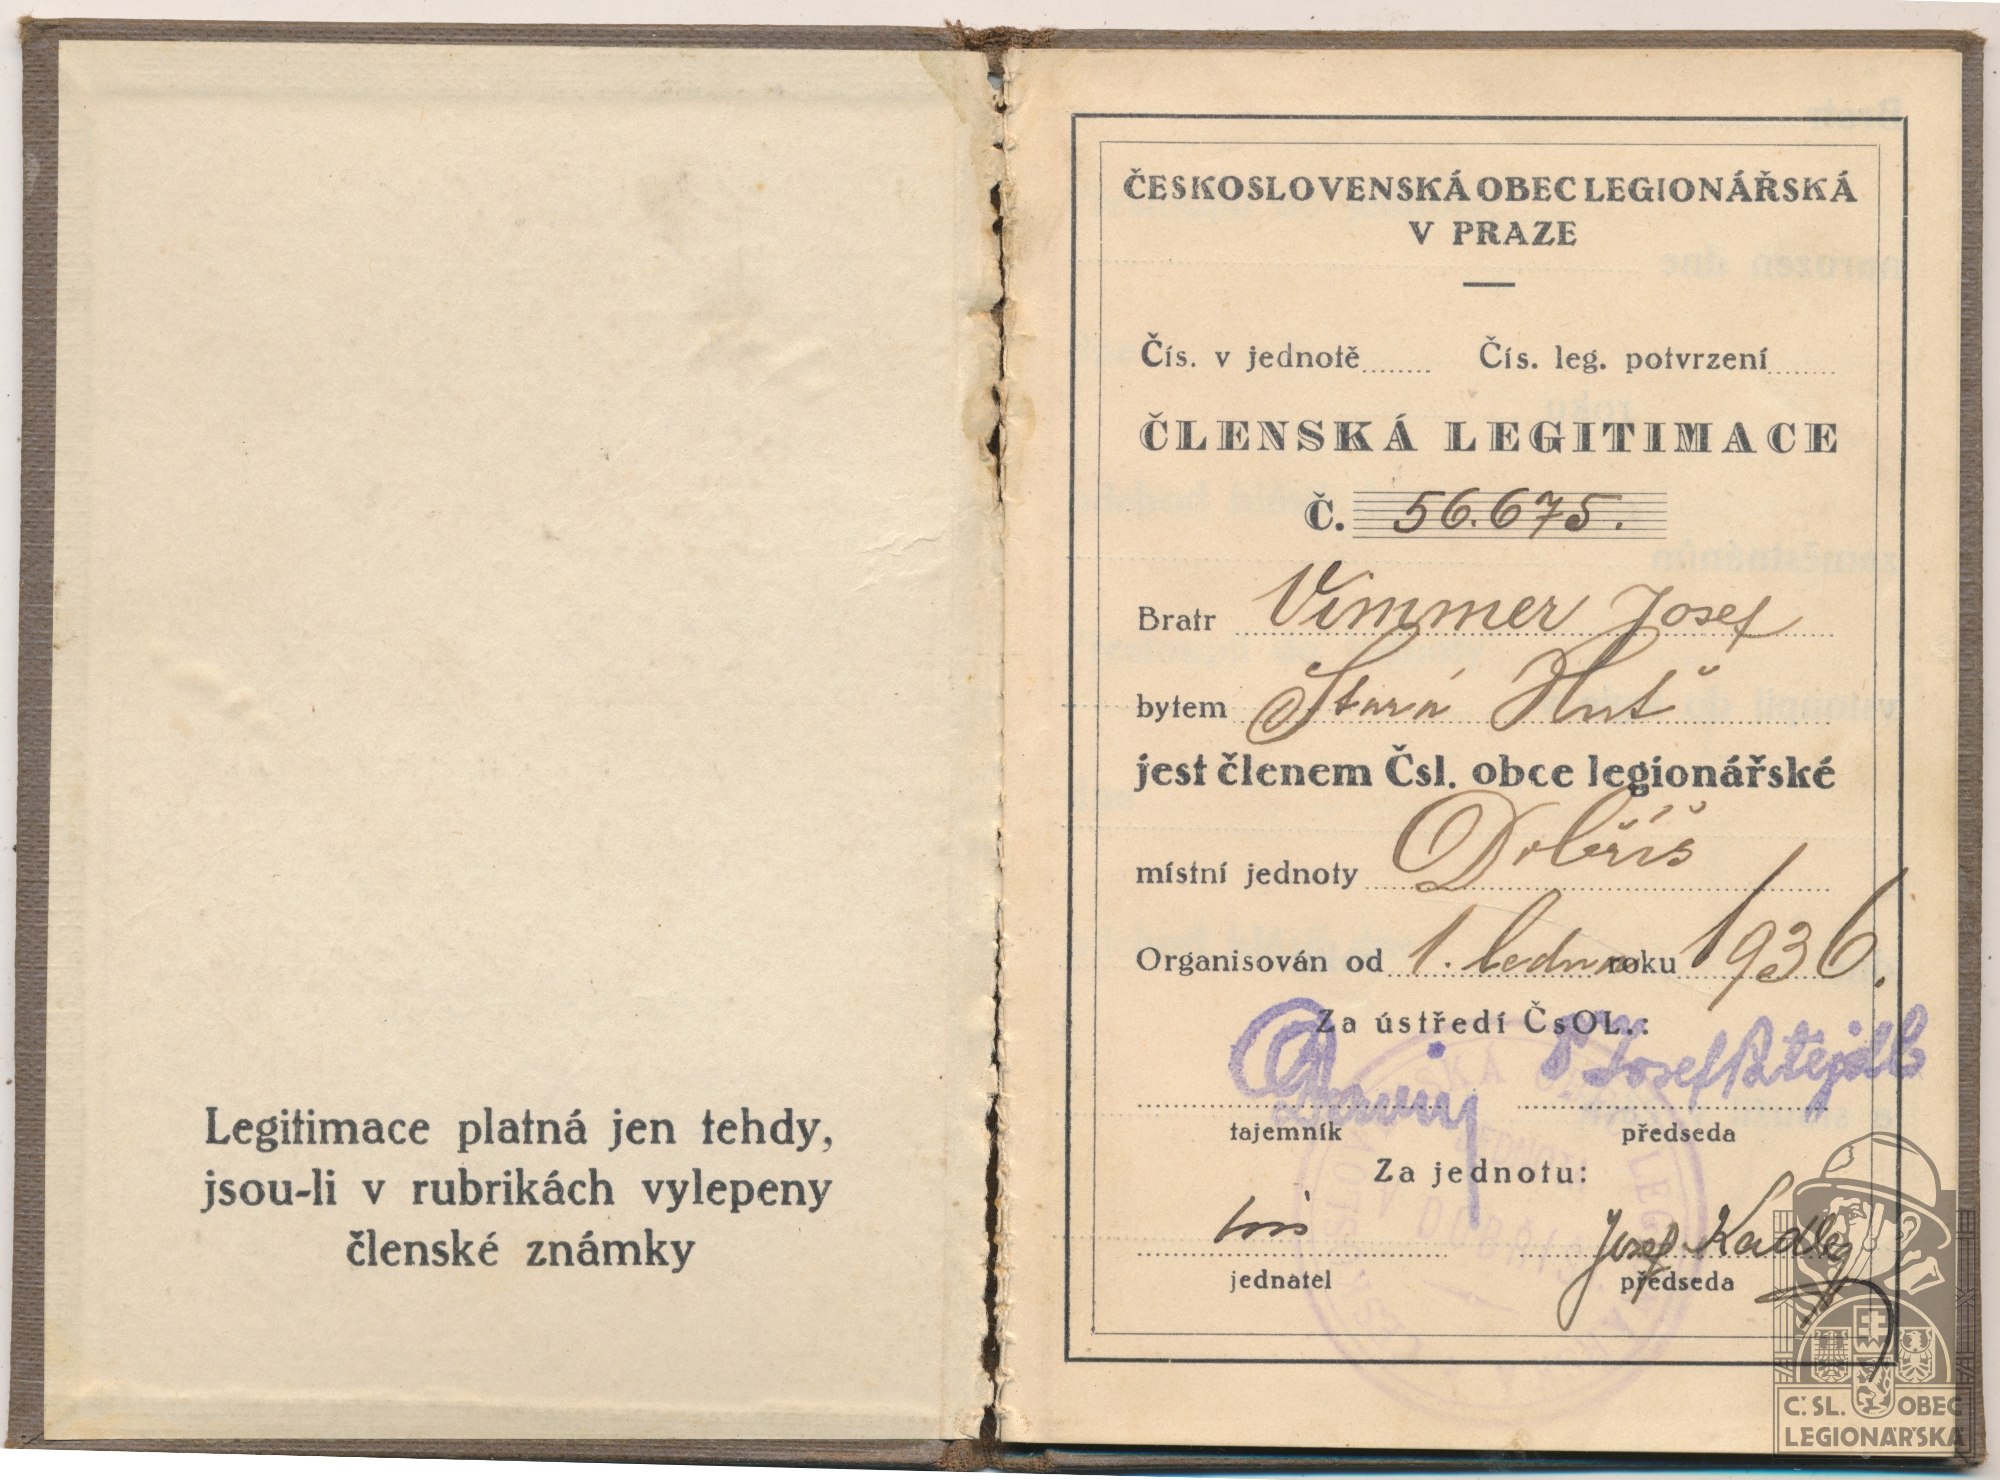 Legitimace platná jen tehdy,
jsou-li v rubrikách vylepeny
členské známky
ČESKOSLOVENSKÁ OBEC LEGIONÁŘSKÁ
V PRAZE
Čís. v jednotě........ Čís. leg. potvrzení........
ČLENSKÁ LEGITIMACE
Č. 56.675.
Bratr Vimmer Josef
bytem Stará Huť
jest členem Čsl. obce legionářské
místní jednoty Dobříš
Organisován od 1. ledna roku 1936.
Za ústředí ČsOL.:
tajemník předseda
Za jednotu:
Josef Kadlec
jednatel předseda
Č.SL. OBEC
LEGIONÁŘSKÁ